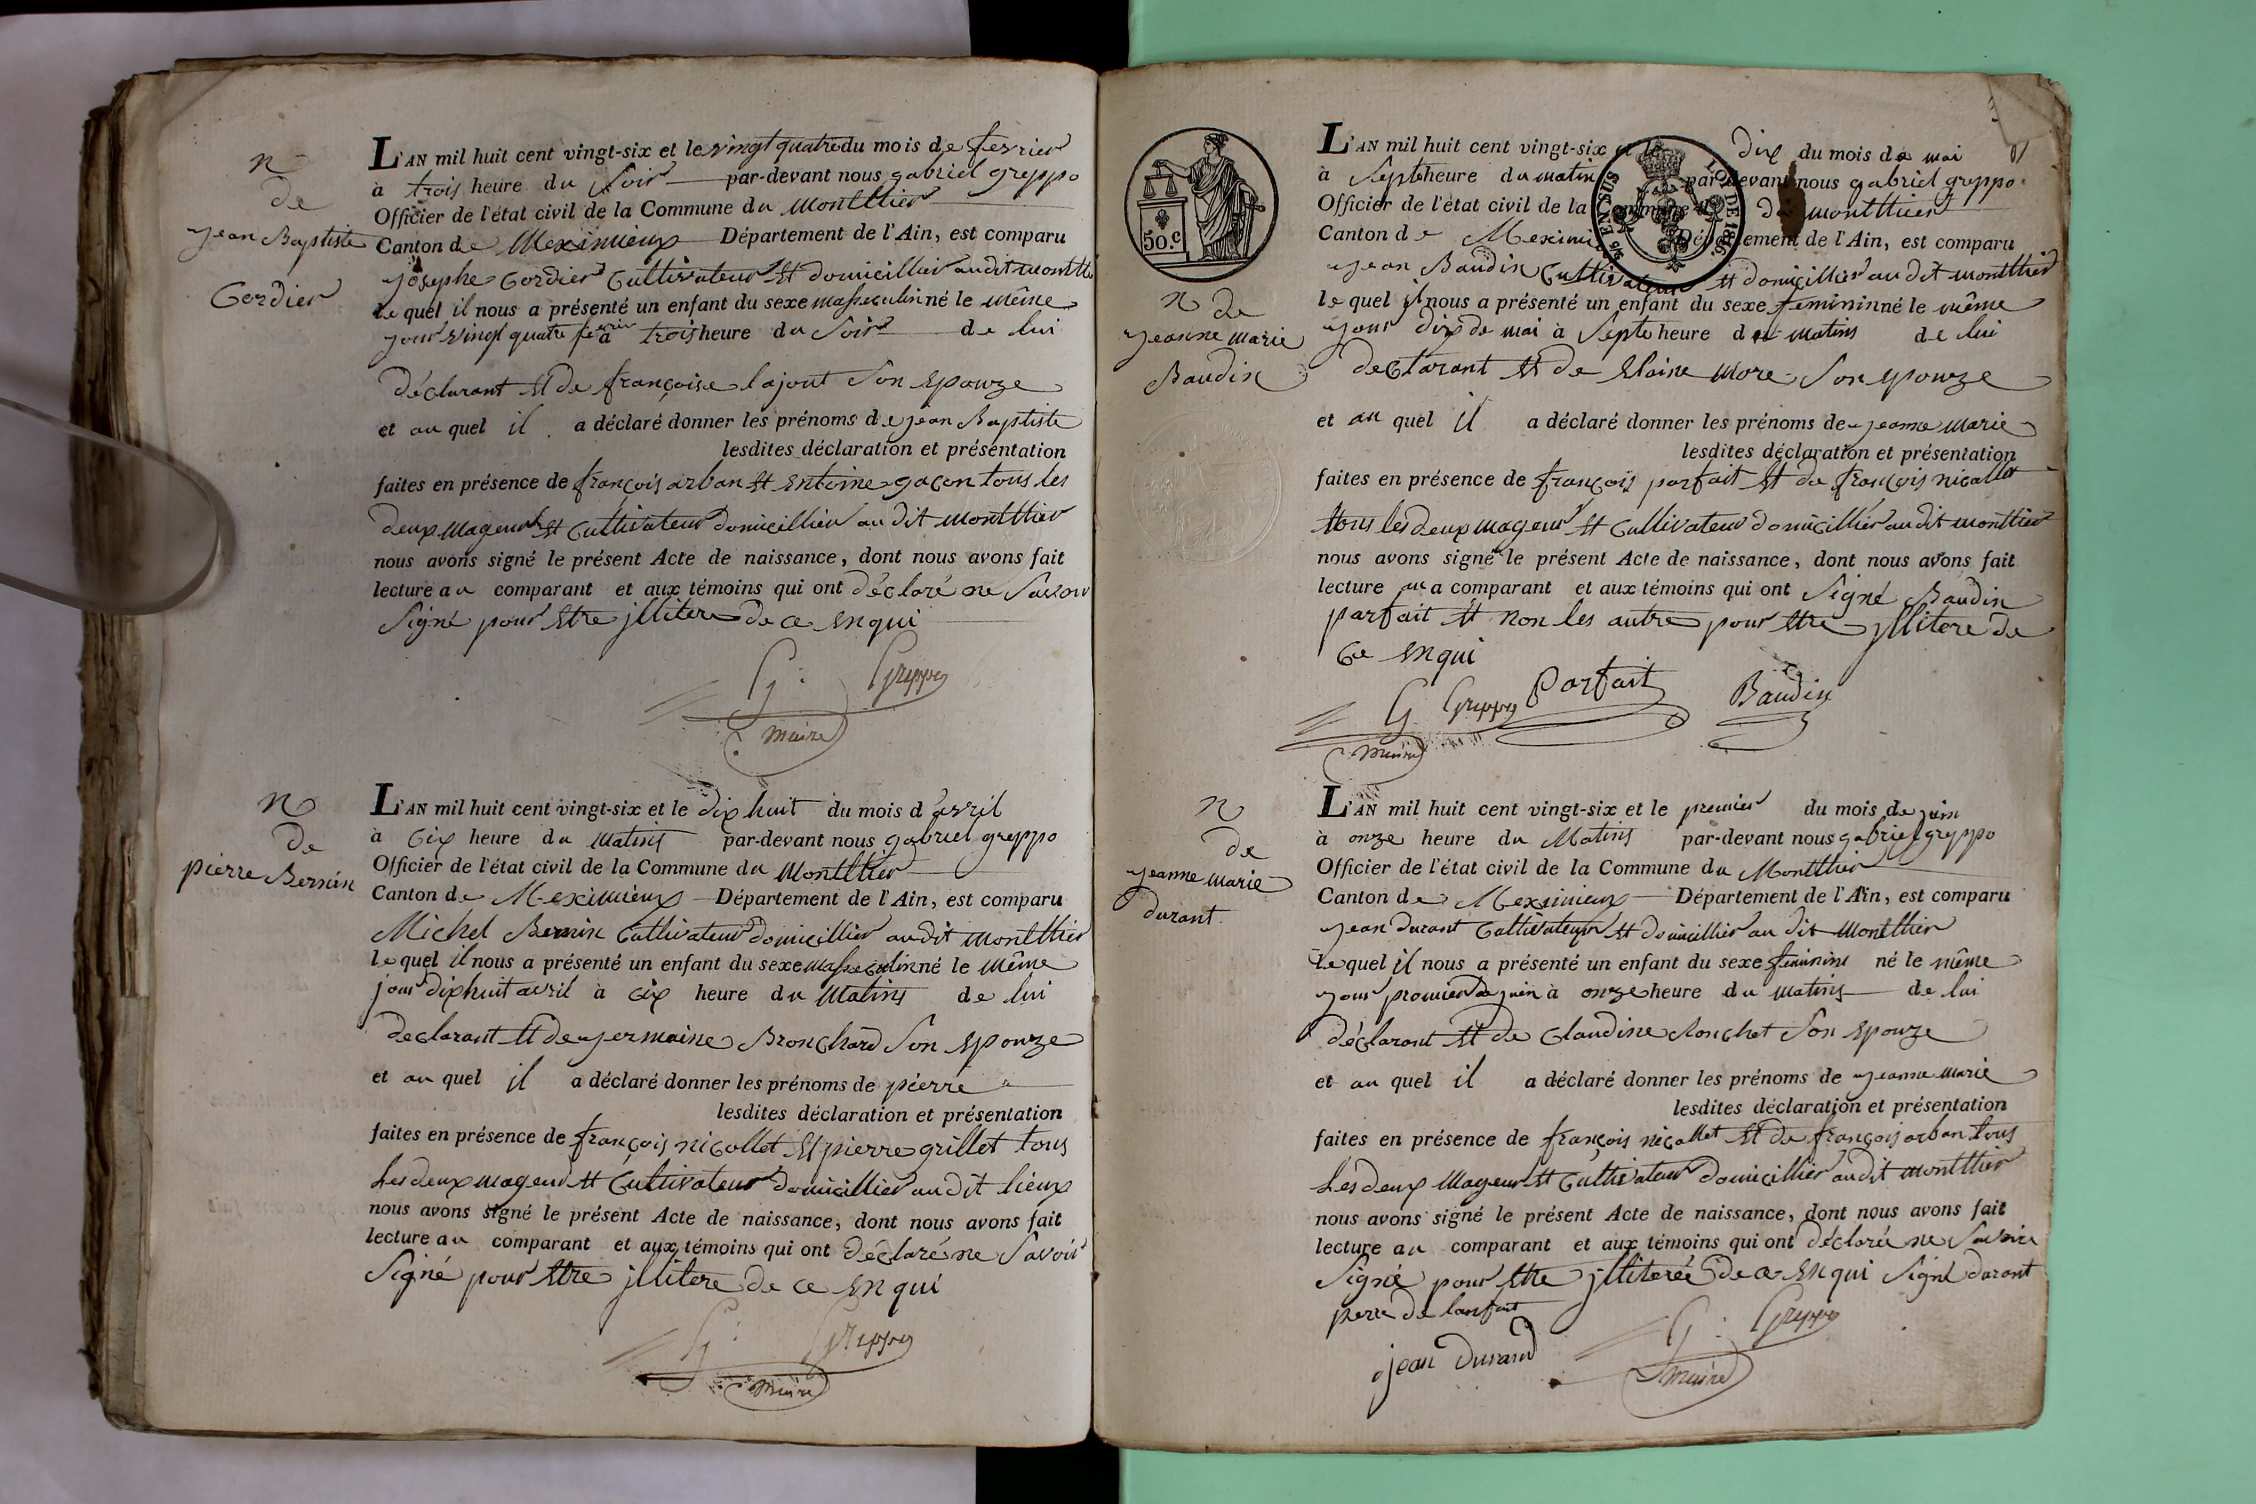 N
de
jean Baptiste
Cordier
L'AN mil huit cent vingt-six et le vingt quatre du mois de fevrier
à trois heure du soir par-devant nous gabriel greppo
Officier de l'état civil de la Commune du Montthier
Canton de Meximieux Département de l'Ain, est comparu
josephe Cordier Cultivateur et domicillier au dit montth
le quel il nous a présenté un enfant du sexe massculin né le même
jour vingt quatre fevrier à trois heure du soir de lui
déclarant et de françoise lajout son epouze
et au quel il a déclaré donner les prénoms de jean Baptiste
lesdites déclaration et présentation
faites en présence de françois arban et entoine gacon tous les
deux mageur et Cultivateur domicillier au dit montthier
nous avons signé le présent Acte de naissance, dont nous avons fait
lecture au comparant et aux témoins qui ont déclaré ne savoir
signé pour etre jllitere de ce enqui
G: Greppo
maire
N
de
pierre Bernin
L'AN mil huit cent vingt-six et le dix huit du mois d'avril
à Six heure du matins par-devant nous gabriel greppo
Officier de l'état civil de la Commune du Montthier
Canton de Meximieux Département de l'Ain, est comparu
Michel Bernin Cultivateur domicillier au dit montthier
le quel il nous a présenté un enfant du sexe massculin né le même
jour dixhuit avril à six heure du matins de lui
declarant et de germaine Bronchard son epouze
et au quel il a déclaré donner les prénoms de piérre
lesdites déclaration et présentation
faites en présence de françois nicollet et pierre grillet tous
les deux mageur et Cultivateur domicillier au dit lieux
nous avons signé le présent Acte de naissance, dont nous avons fait
lecture au comparant et aux témoins qui ont déclaré ne savoir
signé pour etre jllitere de ce enqui
G: Greppo
maire
50.c
N de
jeanne marie
Baudin
L'AN mil huit cent vingt-six et le dix du mois de mai
à Septe heure du matin par-devant nous gabriel greppo
Officier de l'état civil de la Commune du montthier
Canton de Meximieux Département de l'Ain, est comparu
jean Baudin Cultivateur et domicillier au dit montthier
le quel il nous a présenté un enfant du sexe feminin né le même
jour dix de mai à Septe heure du matins de lui
declarant et de Elaine more son epouze
et au quel il a déclaré donner les prénoms de jeanne marie
lesdites déclaration et présentation
faites en présence de françois parfait et de françois nicollet
tous les deux mageur et Cultivateur domicillier au dit montthier
nous avons signé le présent Acte de naissance, dont nous avons fait
lecture au comparant et aux témoins qui ont signé Baudin
parfait et non les autre pour etre jllitere de
Ce enqui
G. Greppo Parfait Baudin
maire
¼ EN SUS LOI DE 1816.
N
de
jeanne marie
durant
L'AN mil huit cent vingt-six et le premier du mois de juin
à onze heure du Matins par-devant nous gabriel greppo
Officier de l'état civil de la Commune du Montthier
Canton de Meximieux Département de l'Ain, est comparu
jean durant Cultivateur et domicillier au dit Montthier
le quel il nous a présenté un enfant du sexe feminins né le même
jour premier de juin à onze heure du matins de lui
déclarant et de Claudine Ronchet son epouze
et au quel il a déclaré donner les prénoms de jeanne marie
lesdites déclaration et présentation
faites en présence de françois nicollet et de françois arban tous
les deux mageur et Cultivateur domicillier au dit montthier
nous avons signé le présent Acte de naissance, dont nous avons fait
lecture au comparant et aux témoins qui ont déclaré ne savoir
signé pour etre jlliteré de ce enqui signé durant
pere de lanfant
jean Durand G: Greppo
maire